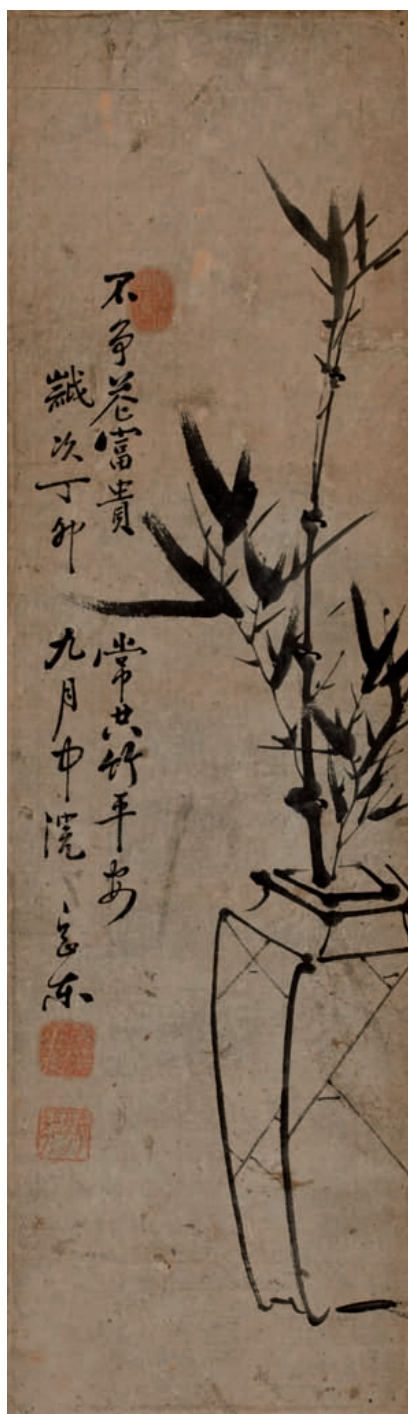 不争花富貴 常共竹平安
歲次丁卯 九月中浣